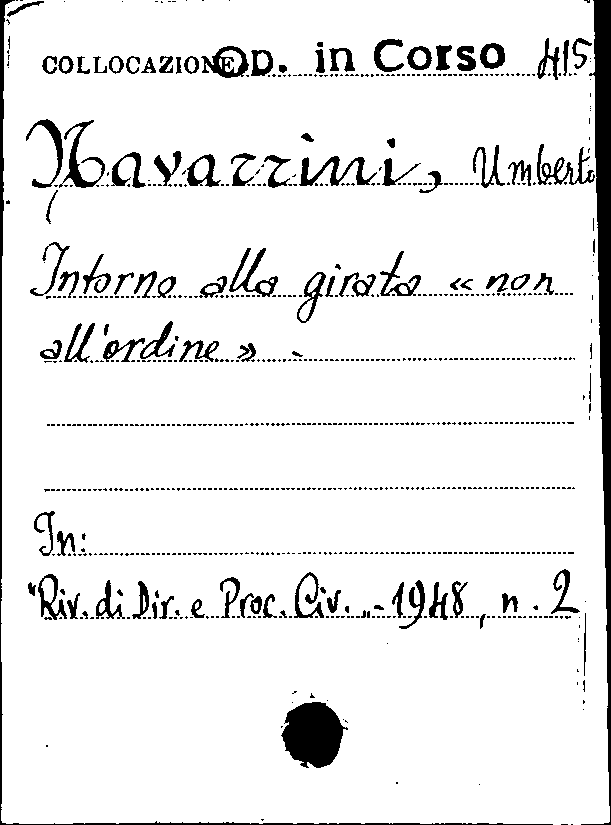 COLLOCAZIONE Op. in Corso 415
Navarrini, Umberto
Intorno alla girata « non
all'ordine » -
In:
"Riv. di Dir. e Proc. Civ. „ - 1948, n. 2